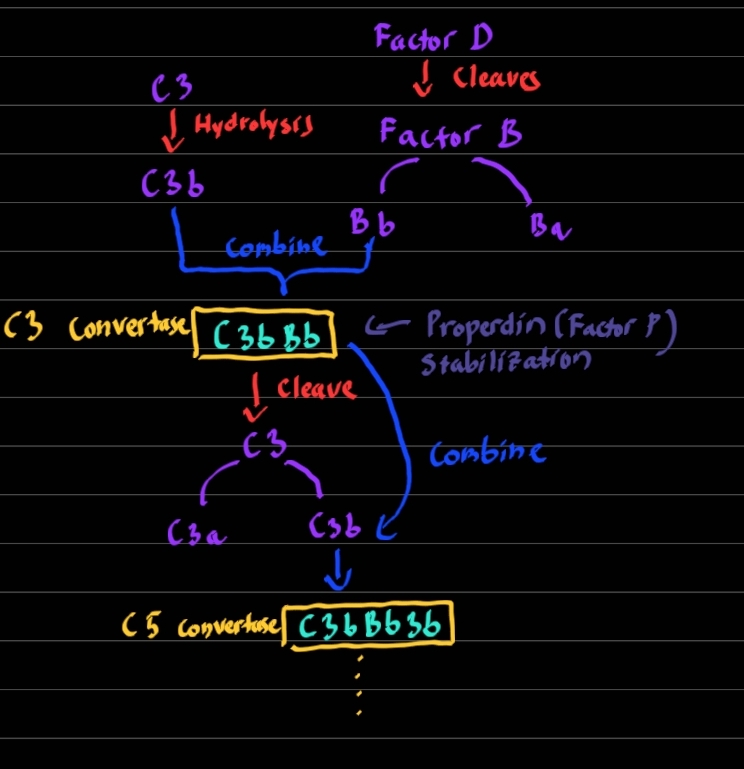 Factor D
Cleaves
C3
Hydrolysis
Factor B
C3b
Bb
Ba
Combine
C3 Convertase
C3bBb
Properdin (Factor P)
Stabilization
Cleave
C3
Combine
C3a
C3b
C5 Convertase
C3bBb3b